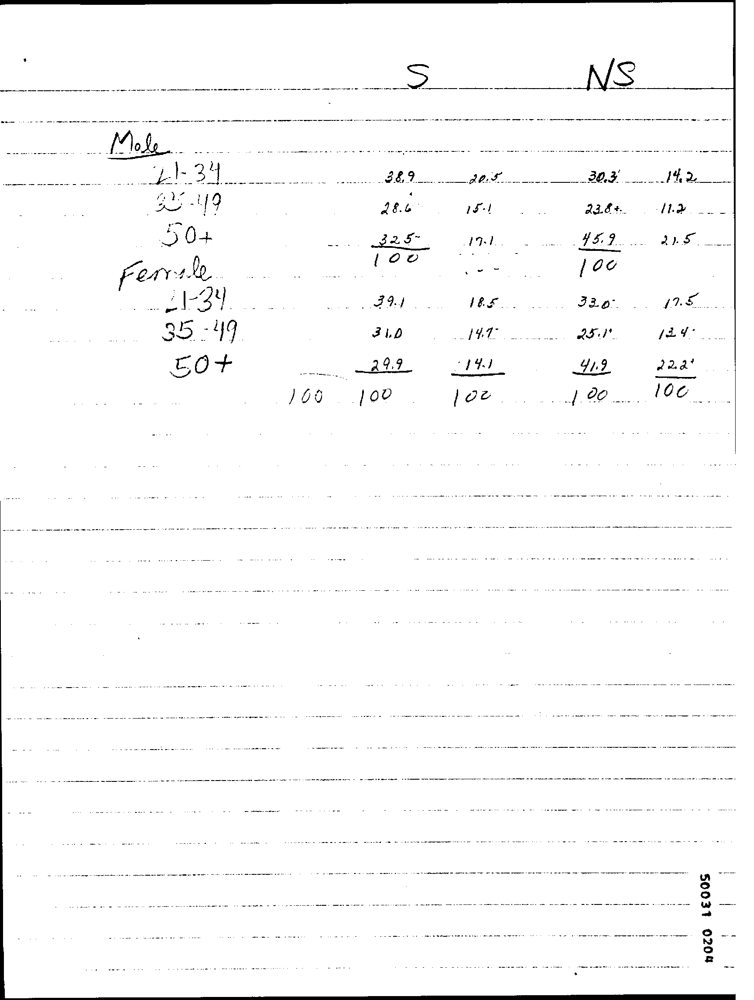 S NS
Male
21-34 38.9 20.5 30.3 14.2
35-49 28.6 15.1 23.8+ 11.2
50+ 32.5 17.1 45.9 21.5
100 100
Female
21-34 39.1 18.5 33.0 17.5
35-49 31.0 14.7 25.1 13.4
50+ 29.9 14.1 41.9 22.2
100 100 100 100 100
50031 0204